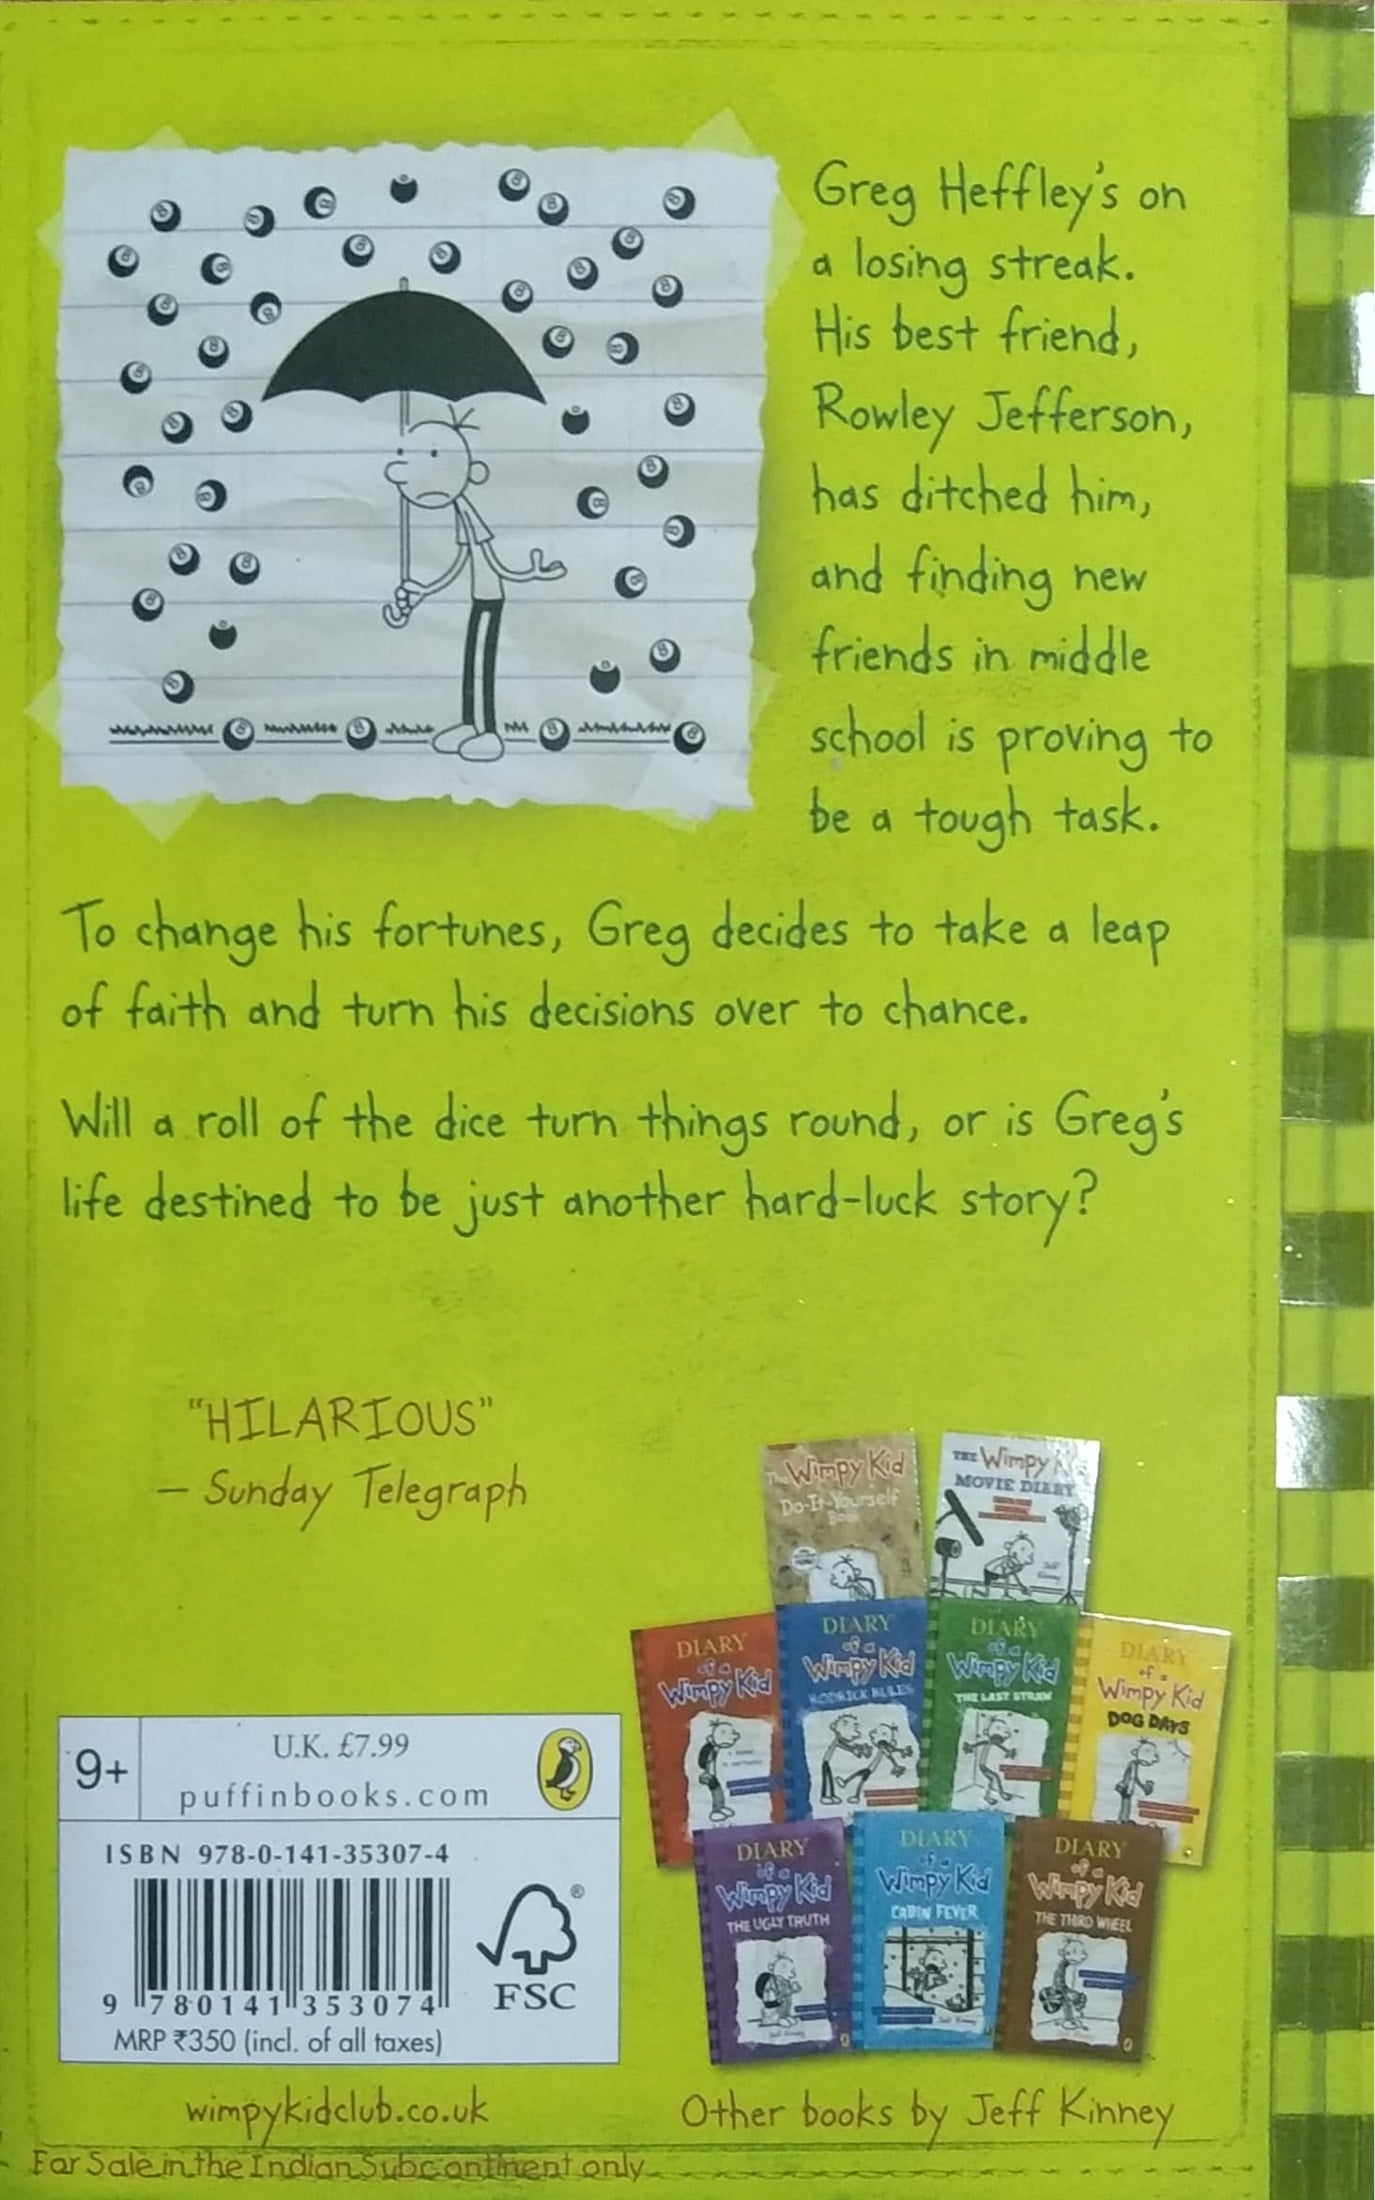 Greg Heffley's on
a losing streak.
His best friend,
Rowley Jefferson,
has ditched him,
and finding new
friends in middle
school is proving to
be a tough task.
To change his fortunes, Greg decides to take a leap
of faith and turn his decisions over to chance.
Will a roll of the dice turn things round, or is Greg's
life destined to be just another hard-luck story?
"HILARIOUS"
– Sunday Telegraph
The Wimpy Kid
Do-It-Yourself
Book
THE Wimpy Kid
MOVIE DIARY
Jeff
Kinney
DIARY
of a
Wimpy Kid
DIARY
of a
Wimpy Kid
RODRICK RULES
DIARY
of a
Wimpy Kid
THE LAST STRAW
DIARY
of a
Wimpy Kid
DOG DAYS
DIARY
of a
Wimpy Kid
THE UGLY TRUTH
Jeff Kinney
DIARY
of a
Wimpy Kid
CABIN FEVER
Jeff Kinney
DIARY
of a
Wimpy Kid
THE THIRD WHEEL
9+
U.K. £7.99
puffinbooks.com
ISBN 978-0-141-35307-4
9 780141 353074
®
FSC
MRP ₹350 (incl. of all taxes)
wimpykidclub.co.uk
Other books by Jeff Kinney
For Sale in the Indian Subcontinent only